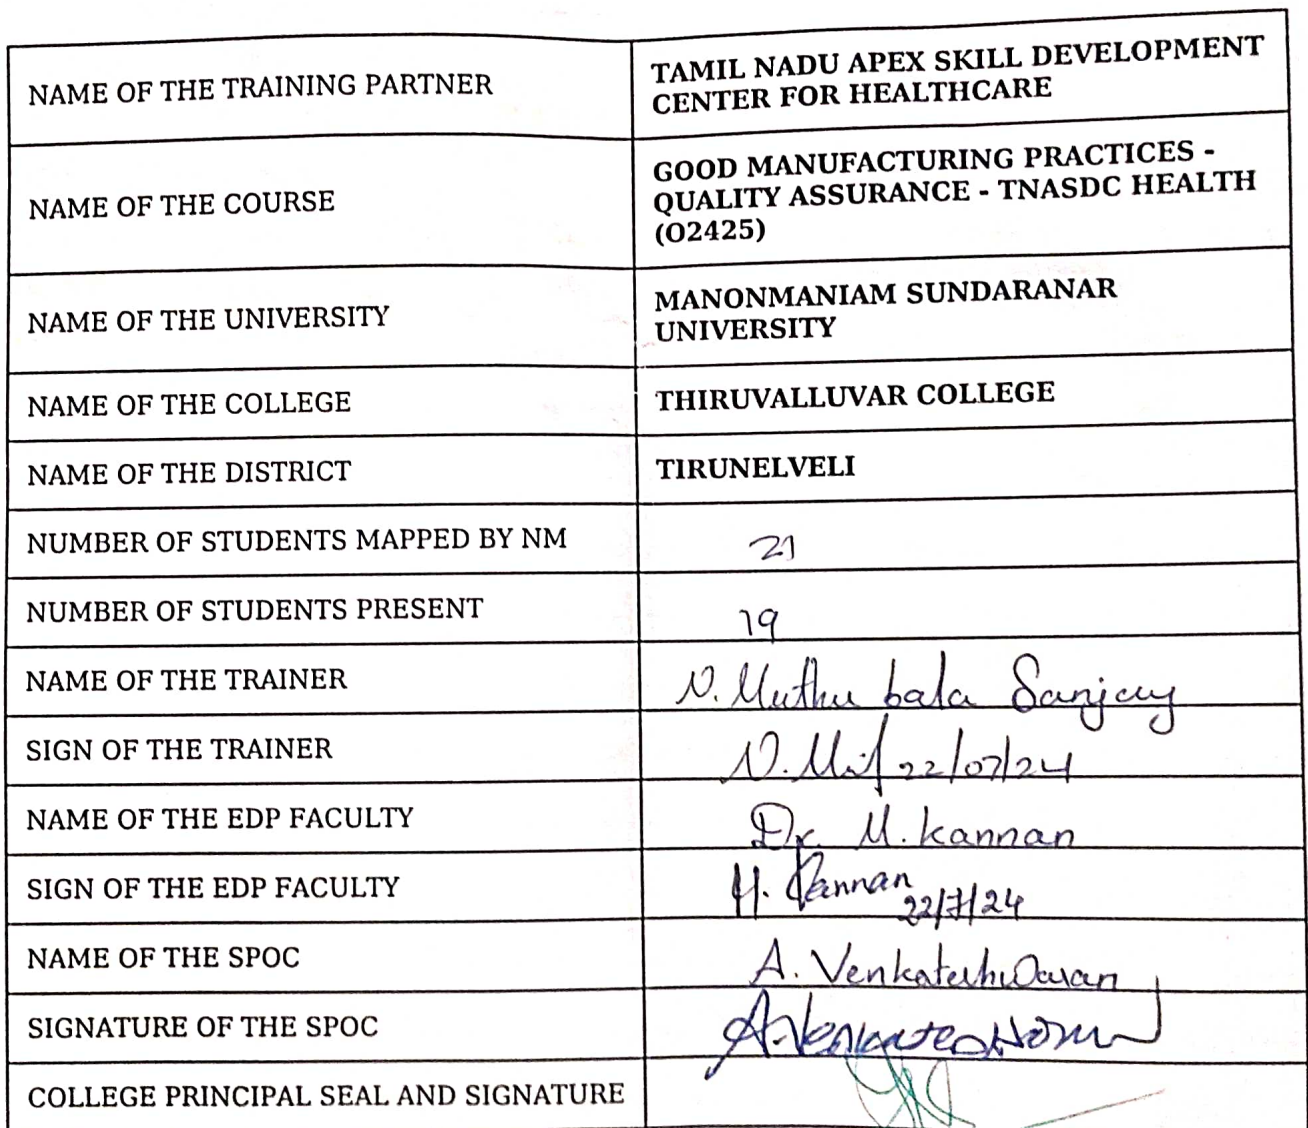 NAME OF THE TRAINING PARTNER
TAMIL NADU APEX SKILL DEVELOPMENT
CENTER FOR HEALTHCARE
NAME OF THE COURSE
GOOD MANUFACTURING PRACTICES -
QUALITY ASSURANCE - TNASDC HEALTH
(O2425)
NAME OF THE UNIVERSITY
MANONMANIAM SUNDARANAR
UNIVERSITY
NAME OF THE COLLEGE
THIRUVALLUVAR COLLEGE
NAME OF THE DISTRICT
TIRUNELVELI
NUMBER OF STUDENTS MAPPED BY NM
21
NUMBER OF STUDENTS PRESENT
19
NAME OF THE TRAINER
N. Muthu bala Sanjay
SIGN OF THE TRAINER
22/07/24
NAME OF THE EDP FACULTY
Dr. M. Kannan
SIGN OF THE EDP FACULTY
M. Kannan
22/7/24
NAME OF THE SPOC
A. Venkateshwaran
SIGNATURE OF THE SPOC
COLLEGE PRINCIPAL SEAL AND SIGNATURE